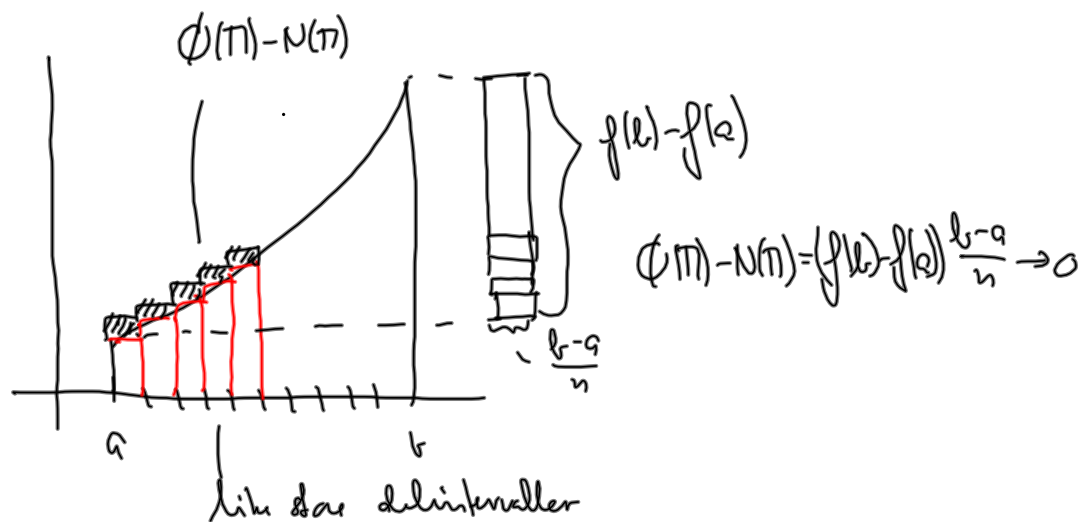 Φ(Π)-N(Π)
f(b)-f(a)
Φ(Π)-N(Π)=(f(b)-f(a)) b-a/n → 0
b-a/n
a b
like store delintervaller